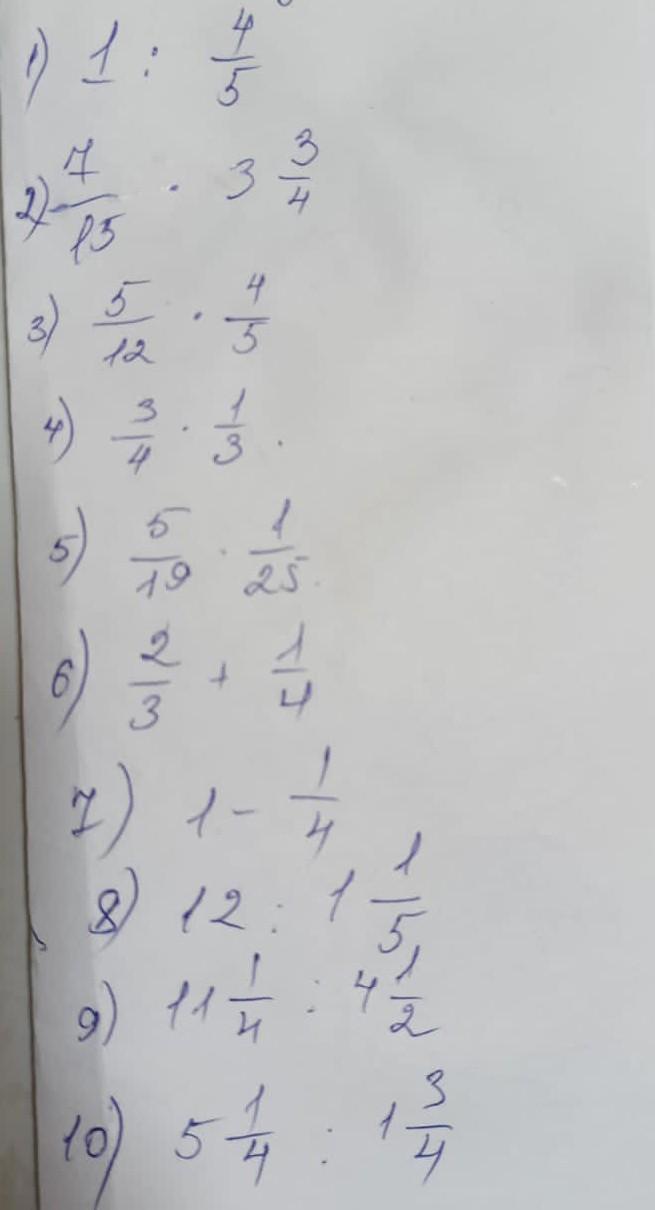 1) 1 : 4/5
2) 7/15 · 3 3/4
3) 5/12 · 4/5
4) 3/4 · 1/3 .
5) 5/19 · 1/25
6) 2/3 + 1/4
7) 1 - 1/4
8) 12 : 1 1/5
9) 11 1/4 : 4 1/2
10) 5 1/4 : 1 3/4